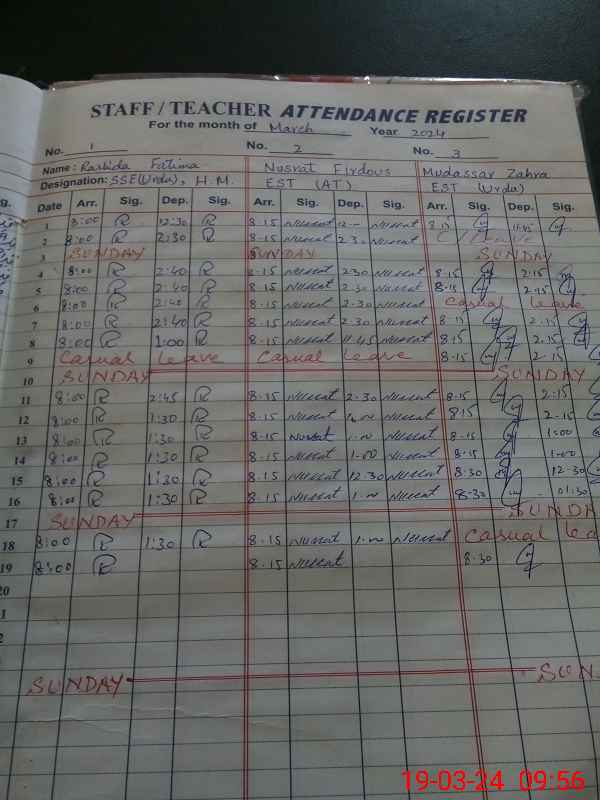 STAFF / TEACHER ATTENDANCE REGISTER
For the month of March Year 2024
No. 1 No. 2 No. 3
Name : Rashida Fatima Nusrat Firdous Mudassar Zahra
Designation: SSE(Urdu), H.M. EST (AT) EST (Urdu)
Date Arr. Sig. Dep. Sig. Arr. Sig. Dep. Sig. Arr. Sig. Dep. Sig.
1 8:00 R 12:30 R 8.15 Nusrat 12.- Nusrat 8.15 11.45
2 8:00 R 2:30 R 8.15 Nusrat 2.30 Nusrat C/Leave
3 SUNDAY SUNDAY SUNDAY
4 8:00 R 2:40 R 8.15 Nusrat 2.30 Nusrat 8.15 2.15
5 8:00 R 2:40 R 8.15 Nusrat 2.30 Nusrat 8.15 2.15
6 8:00 R 2:40 R 8.15 Nusrat 2.30 Nusrat Casual leave
7 8:00 R 2:40 R 8.15 Nusrat 2.30 Nusrat 8.15 2.15
8 8:00 R 1:00 R 8.15 Nusrat 11.45 Nusrat 8.15 2.15
9 Casual leave Casual leave 8.15 2.15
10 SUNDAY SUNDAY
11 8:00 R 2:45 R 8.15 Nusrat 2.30 Nusrat 8.15 2.15
12 8:00 R 1:30 R 8.15 Nusrat 1.00 Nusrat 8.15 2.15
13 8:00 R 1:30 R 8.15 Nusrat 1.00 Nusrat 8.15 1:00
14 8:00 R 1:30 R 8.15 Nusrat 1.00 Nusrat 8.15 1.00
15 8:00 R 1:30 R 8.15 Nusrat 12.30 Nusrat 8.30 12.30
16 8:00 R 1:30 R 8.15 Nusrat 1.00 Nusrat 8.30 01.30
17 SUNDAY SUNDA
18 8:00 R 1:30 R 8.15 Nusrat 1.00 Nusrat Casual lea
19 8:00 R 8.15 Nusrat 8.30
20
SUNDAY SUN
19-03-24 09:56